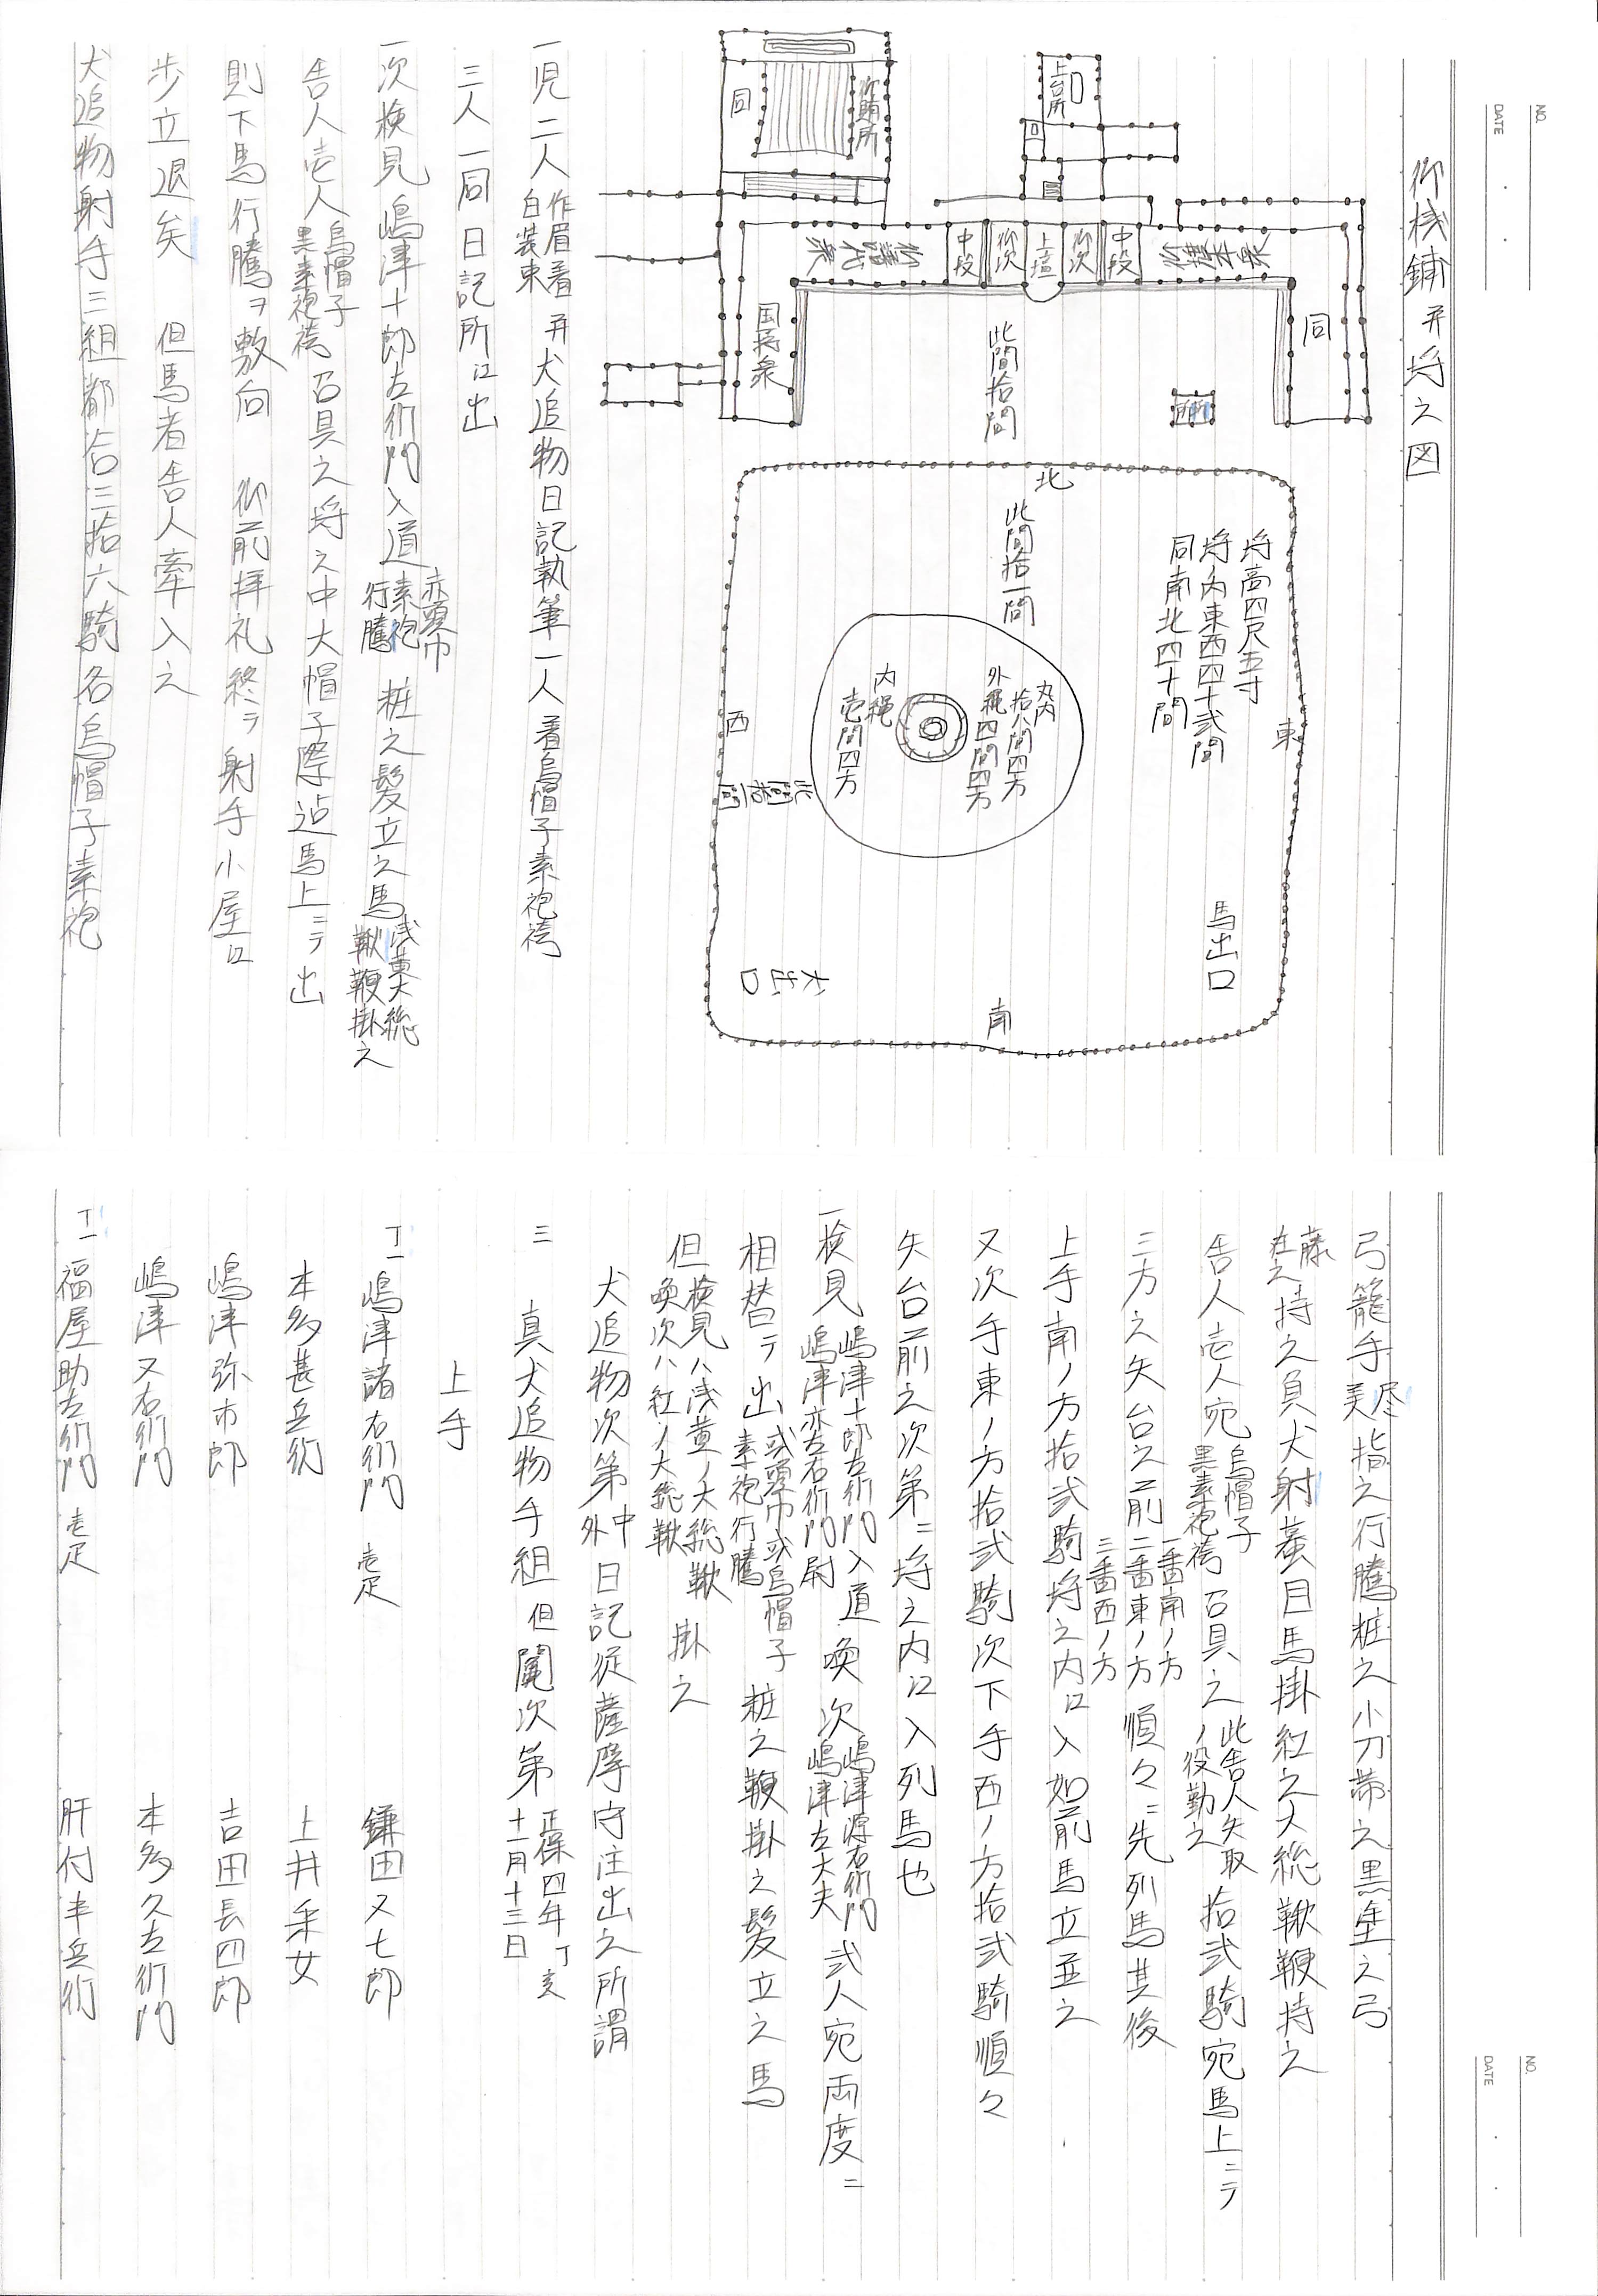 NO.
DATE
御桟鋪并埒之図
御賄所
同
上台所
中段
御次
上壇
次
中段
国寄衆
同
此間拾間
北
此間拾一間
埒高四尺五寸
埒内東西四十弐間
同南北四十間
東
丸内
拾八間四方
外縄四間四方
内縄
壱間四方
西
此間拾一間
馬出口
犬出口
南
一児二人作眉着白装束并犬追物日記執筆一人着烏帽子素袍袴
三人一同日記所江出
一次検見嶋津十郎左衛門入道赤頭巾素袍行騰粧之髪立之馬浅黄大総鞦鞭掛之
告人壱人烏帽子黒素袍袴召具之埒之中大帽子際迠馬上ニテ出
則下馬行騰ヲ敷向　御前拝礼終テ射手小屋江
歩立退矣　但馬者告人牽入之
犬追物射手三組都合三拾六騎各烏帽子素袍
NO.
DATE
弓籠手尽美指之行騰粧之小刀帯之黒塗之弓
藤在之持之負犬射蟇目馬掛紅之大総鞦鞭持之
告人壱人宛烏帽子黒素袍袴召具之此告人矢取ノ役勤之拾弐騎宛馬上ニテ
三方之矢台之前一番南ノ方二番東ノ方三番西ノ方順々ニ先列馬其後
上手南ノ方拾弐騎埒之内江入如前馬立並之
又次手東ノ方拾弐騎次下手西ノ方拾弐騎順々
矢台前之次第ニ埒之内江入列馬也
一検見嶋津十郎左衛門入道嶋津亦左右衛門尉喚次嶋津源右衛門嶋津左大夫弐人宛両度ニ
相替テ出或頭巾或烏帽子素袍行騰粧之鞭掛之髪立之馬
但検見ハ浅黄ノ大総鞦喚次ハ紅ノ大総鞦掛之
犬追物次第中外日記従薩摩守注出之所謂
三　真犬追物手組但鬮次第正保四年丁亥十一月十三日
上手
丁一嶋津諸右衛門　壱疋　鎌田又七郎
本多甚兵衛　上井采女
嶋津弥市郎　吉田長四郎
嶋津又右衛門　本多久左衛門
丁一福屋助左衛門　壱疋　肝付半兵衛